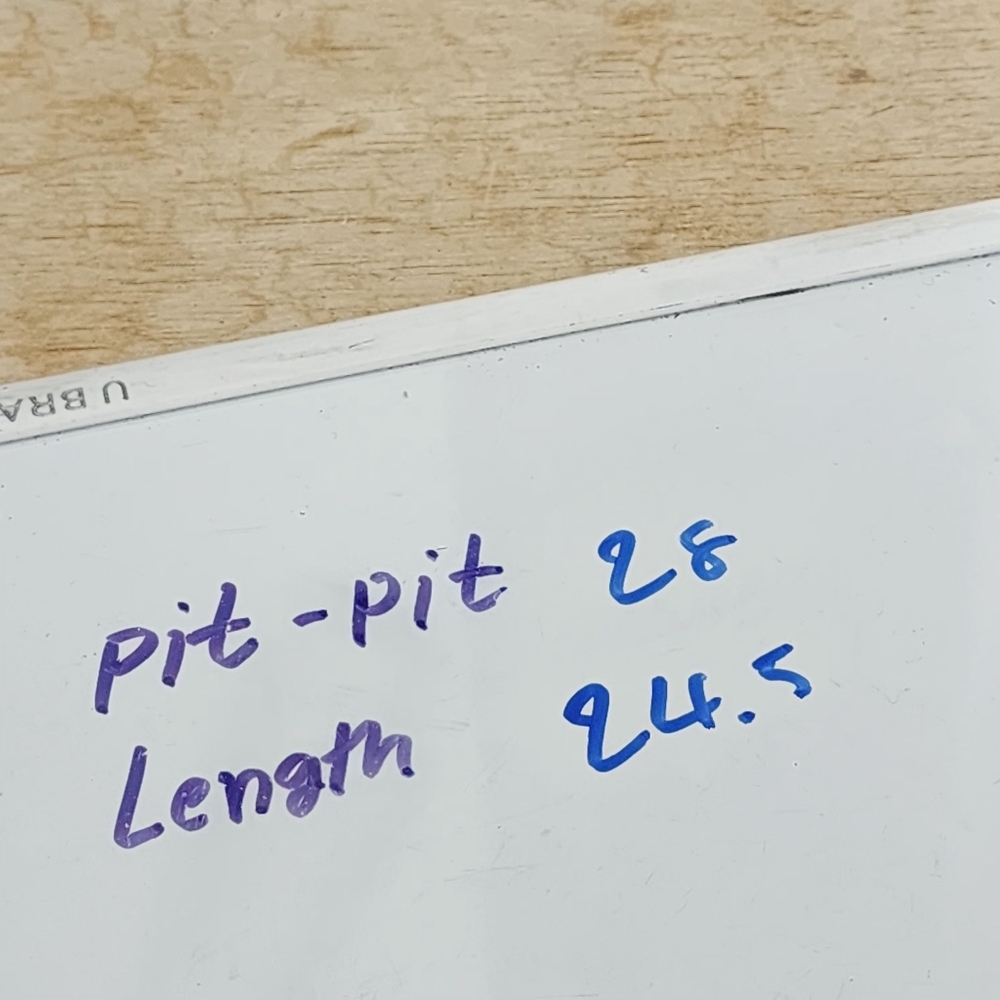 U BRA
pit-pit 28
Length 24.5